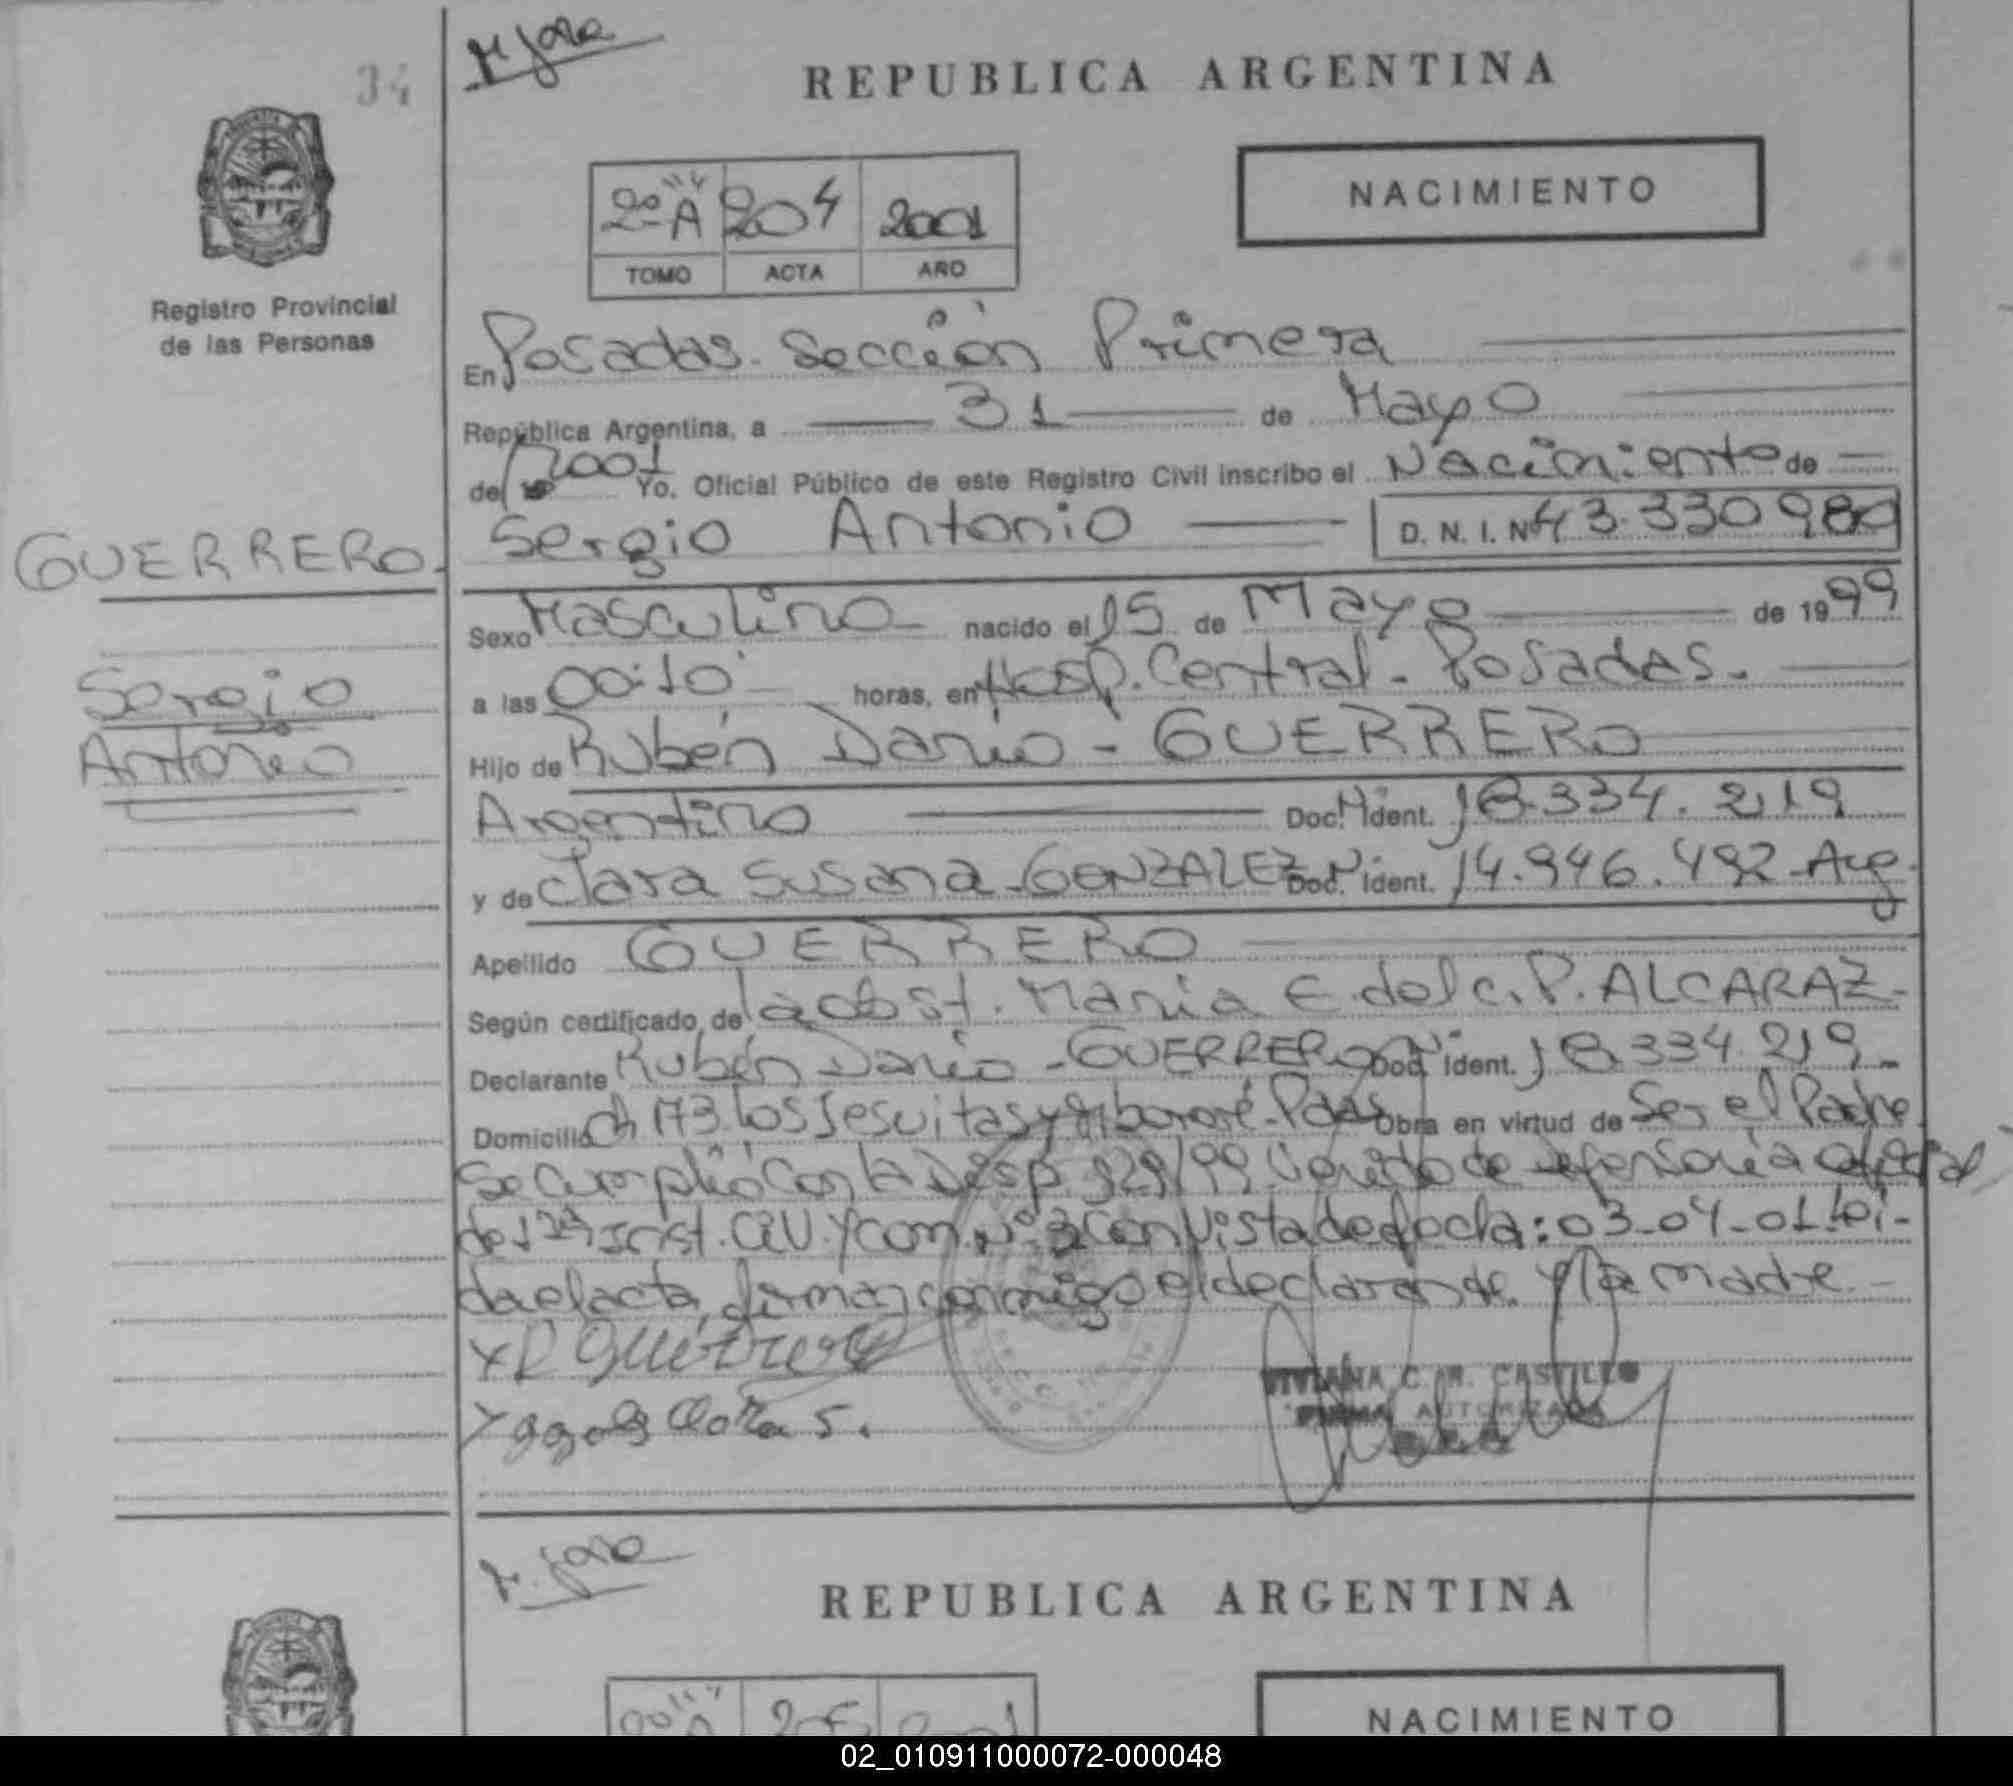 34
REPUBLICA ARGENTINA
NACIMIENTO
2º "A" 204 2001
TOMO ACTA AÑO
Registro Provincial
de las Personas
En Posadas. Sección Primera
República Argentina, a 31 de Mayo
de 2001 Yo. Oficial Público de este Registro Civil inscribo el Nacimiento de
GUERRERO. Sergio Antonio D. N. I. Nº 43.330980
Sexo Masculino nacido el 15 de Mayo de 1999
Sergio
a las 00:10' horas, en Hosp. Central - Posadas.
Antonio
Hijo de Rubén Darío - GUERRERO
Argentino Doc. Ident. 18.334.219
y de Clara Susana - GONZALEZ Doc. Ident. 14.946.492 - Arg.
Apellido GUERRERO
Según certificado de la obst. María E. del C. P. ALCARAZ -
Declarante Rubén Darío - GUERRERO Doc. Ident. 18.334.219 -
Domicilio Ch 173 Los Jesuitas y Posadas Obra en virtud de Ser el Padre
Se cumplió con la Disp. 929/99 de Defensoría Oficial
de 1ra Inst. Civ. y Com. Nº con vista de fecha: 03-04-01. Leí-
da el acta, firman conmigo el declarante y la madre -
x R Guerrero
Clara S.
VIVIANA C. M. CASTILLO
FIRMA AUTORIZADA
REPUBLICA ARGENTINA
NACIMIENTO
02_010911000072-000048